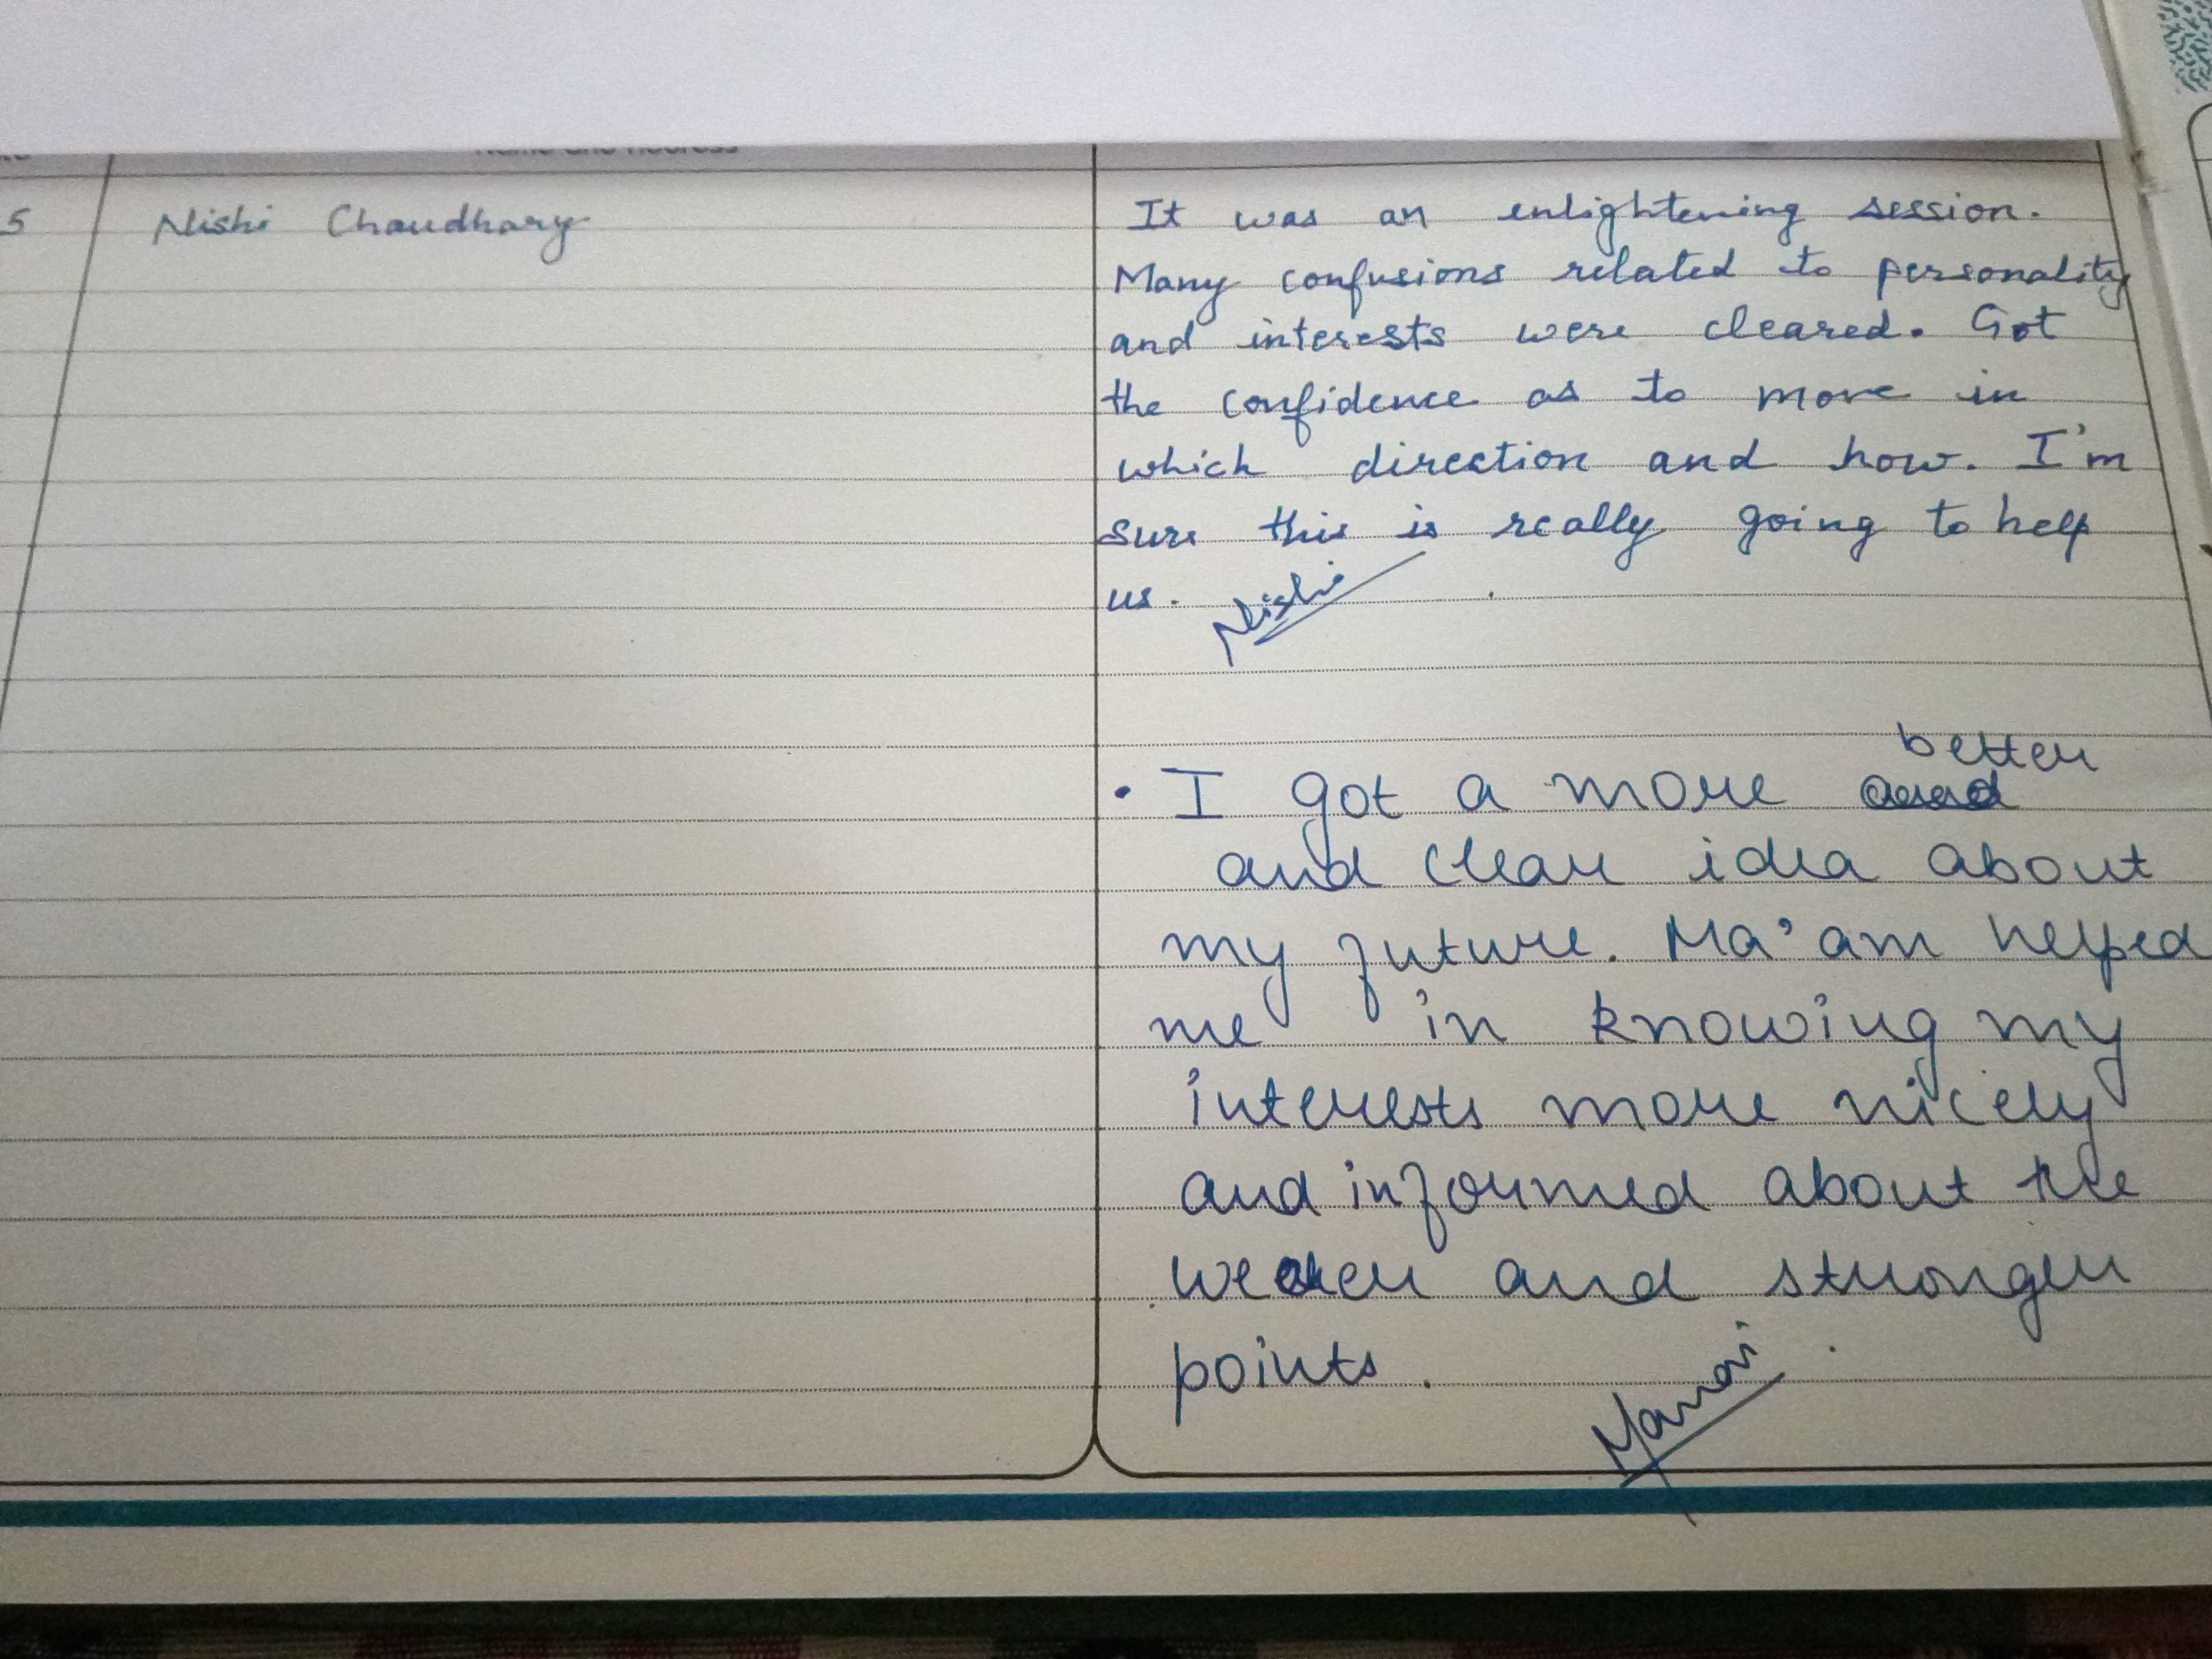 Name and Address
5 Nishi Chaudhary
It was an enlightening session.
Many confusions related to personality
and interests were cleared. Got
the confidence as to move in
which direction and how. I'm
sure this is really going to help
us. Nishi
better
• I got a more
and clear idea about
my future. Ma'am helped
me in knowing my
interests more nicely
and informed about the
and stronger
points.